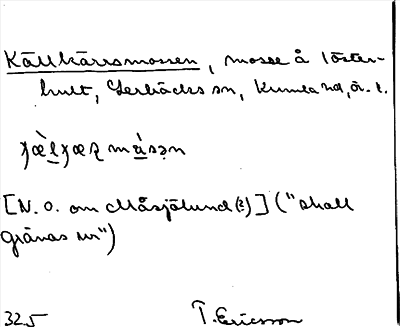 Källkärrsmossen, mosse å löster-
hult, Lerbäcks sn, Kumla hd, ör. l.
[N. o. om Måsjölund(?)] ("skall
gränas ur")
325 T. Ericsson